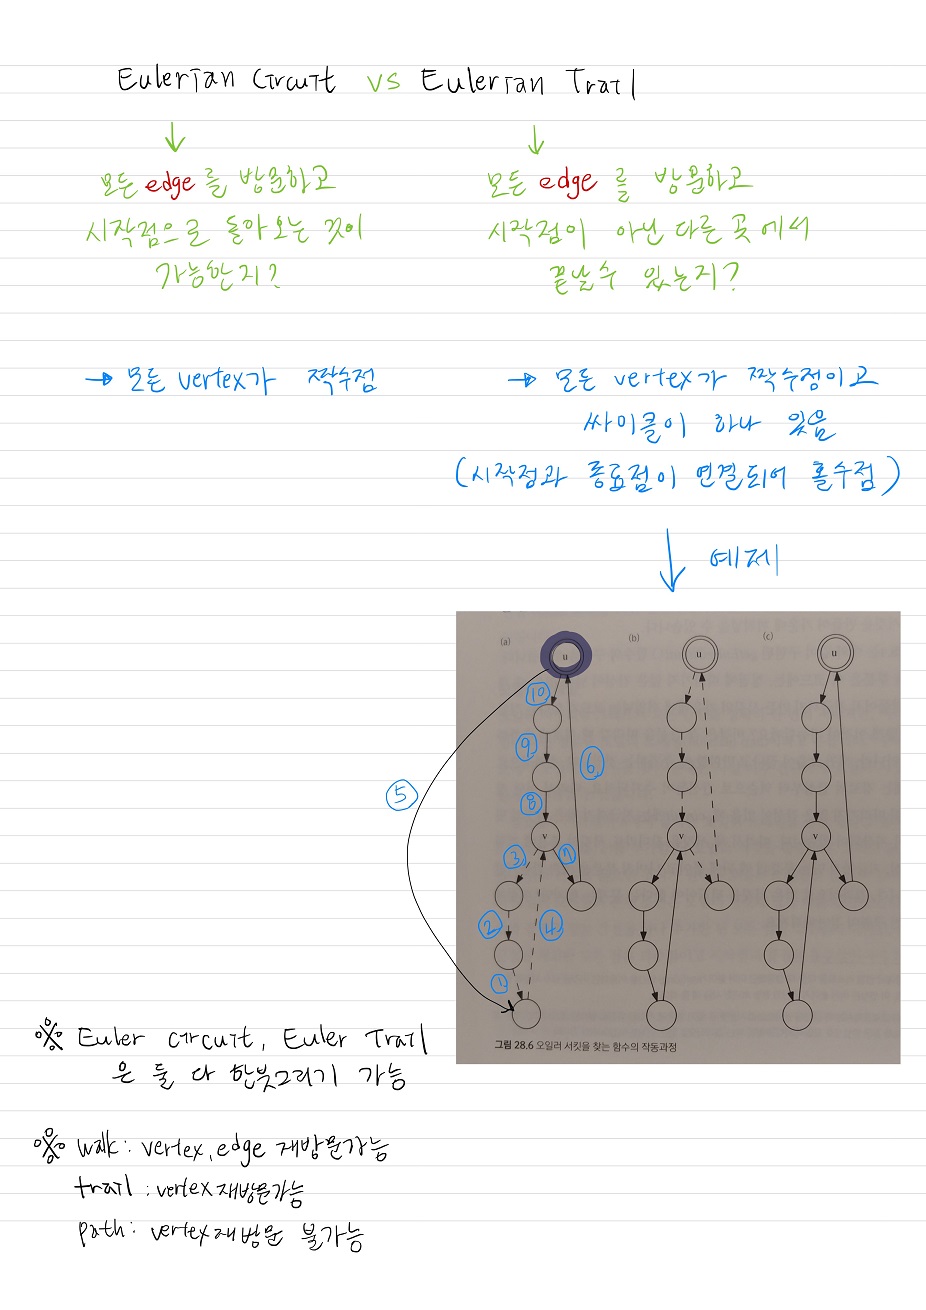 Eulerian Circuit vs Eulerian Trail
↓ ↓
모든 edge 를 방문하고
시작점으로 돌아오는 것이
가능한지?
모든 edge 를 방문하고
시작점이 아닌 다른 곳에서
끝날 수 있는지?
→ 모든 vertex가 짝수점
→ 모든 vertex가 짝수점이고
싸이클이 하나 있음
(시작점과 종료점이 연결되어 홀수점)
↓ 예제
(a) (b) (c)
u u u
⑩
⑨ ⑥
⑤
⑧
v v v
③ ⑦
② ④
①
그림 28.6 오일러 서킷을 찾는 함수의 작동과정
※ Euler circuit, Euler Trail
은 둘 다 한붓그리기 가능
※ walk : vertex, edge 재방문가능
trail : vertex 재방문가능
path : vertex 재방문 불가능